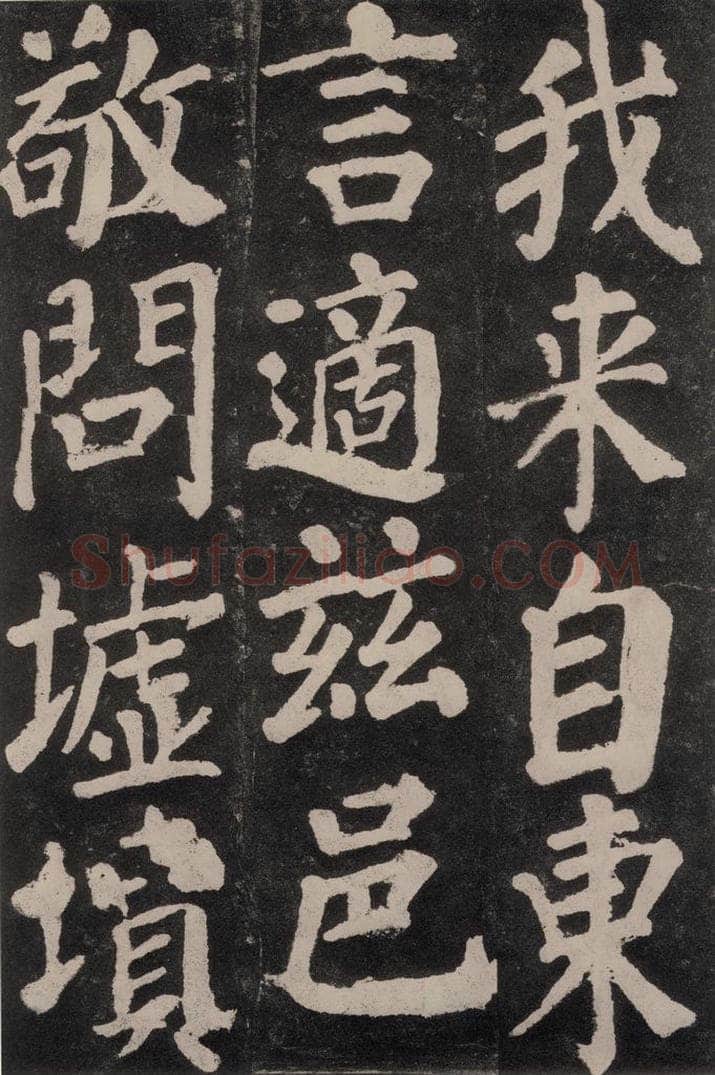 我来自東
言適茲邑
敬問墟墳
Shufaziliao.COM